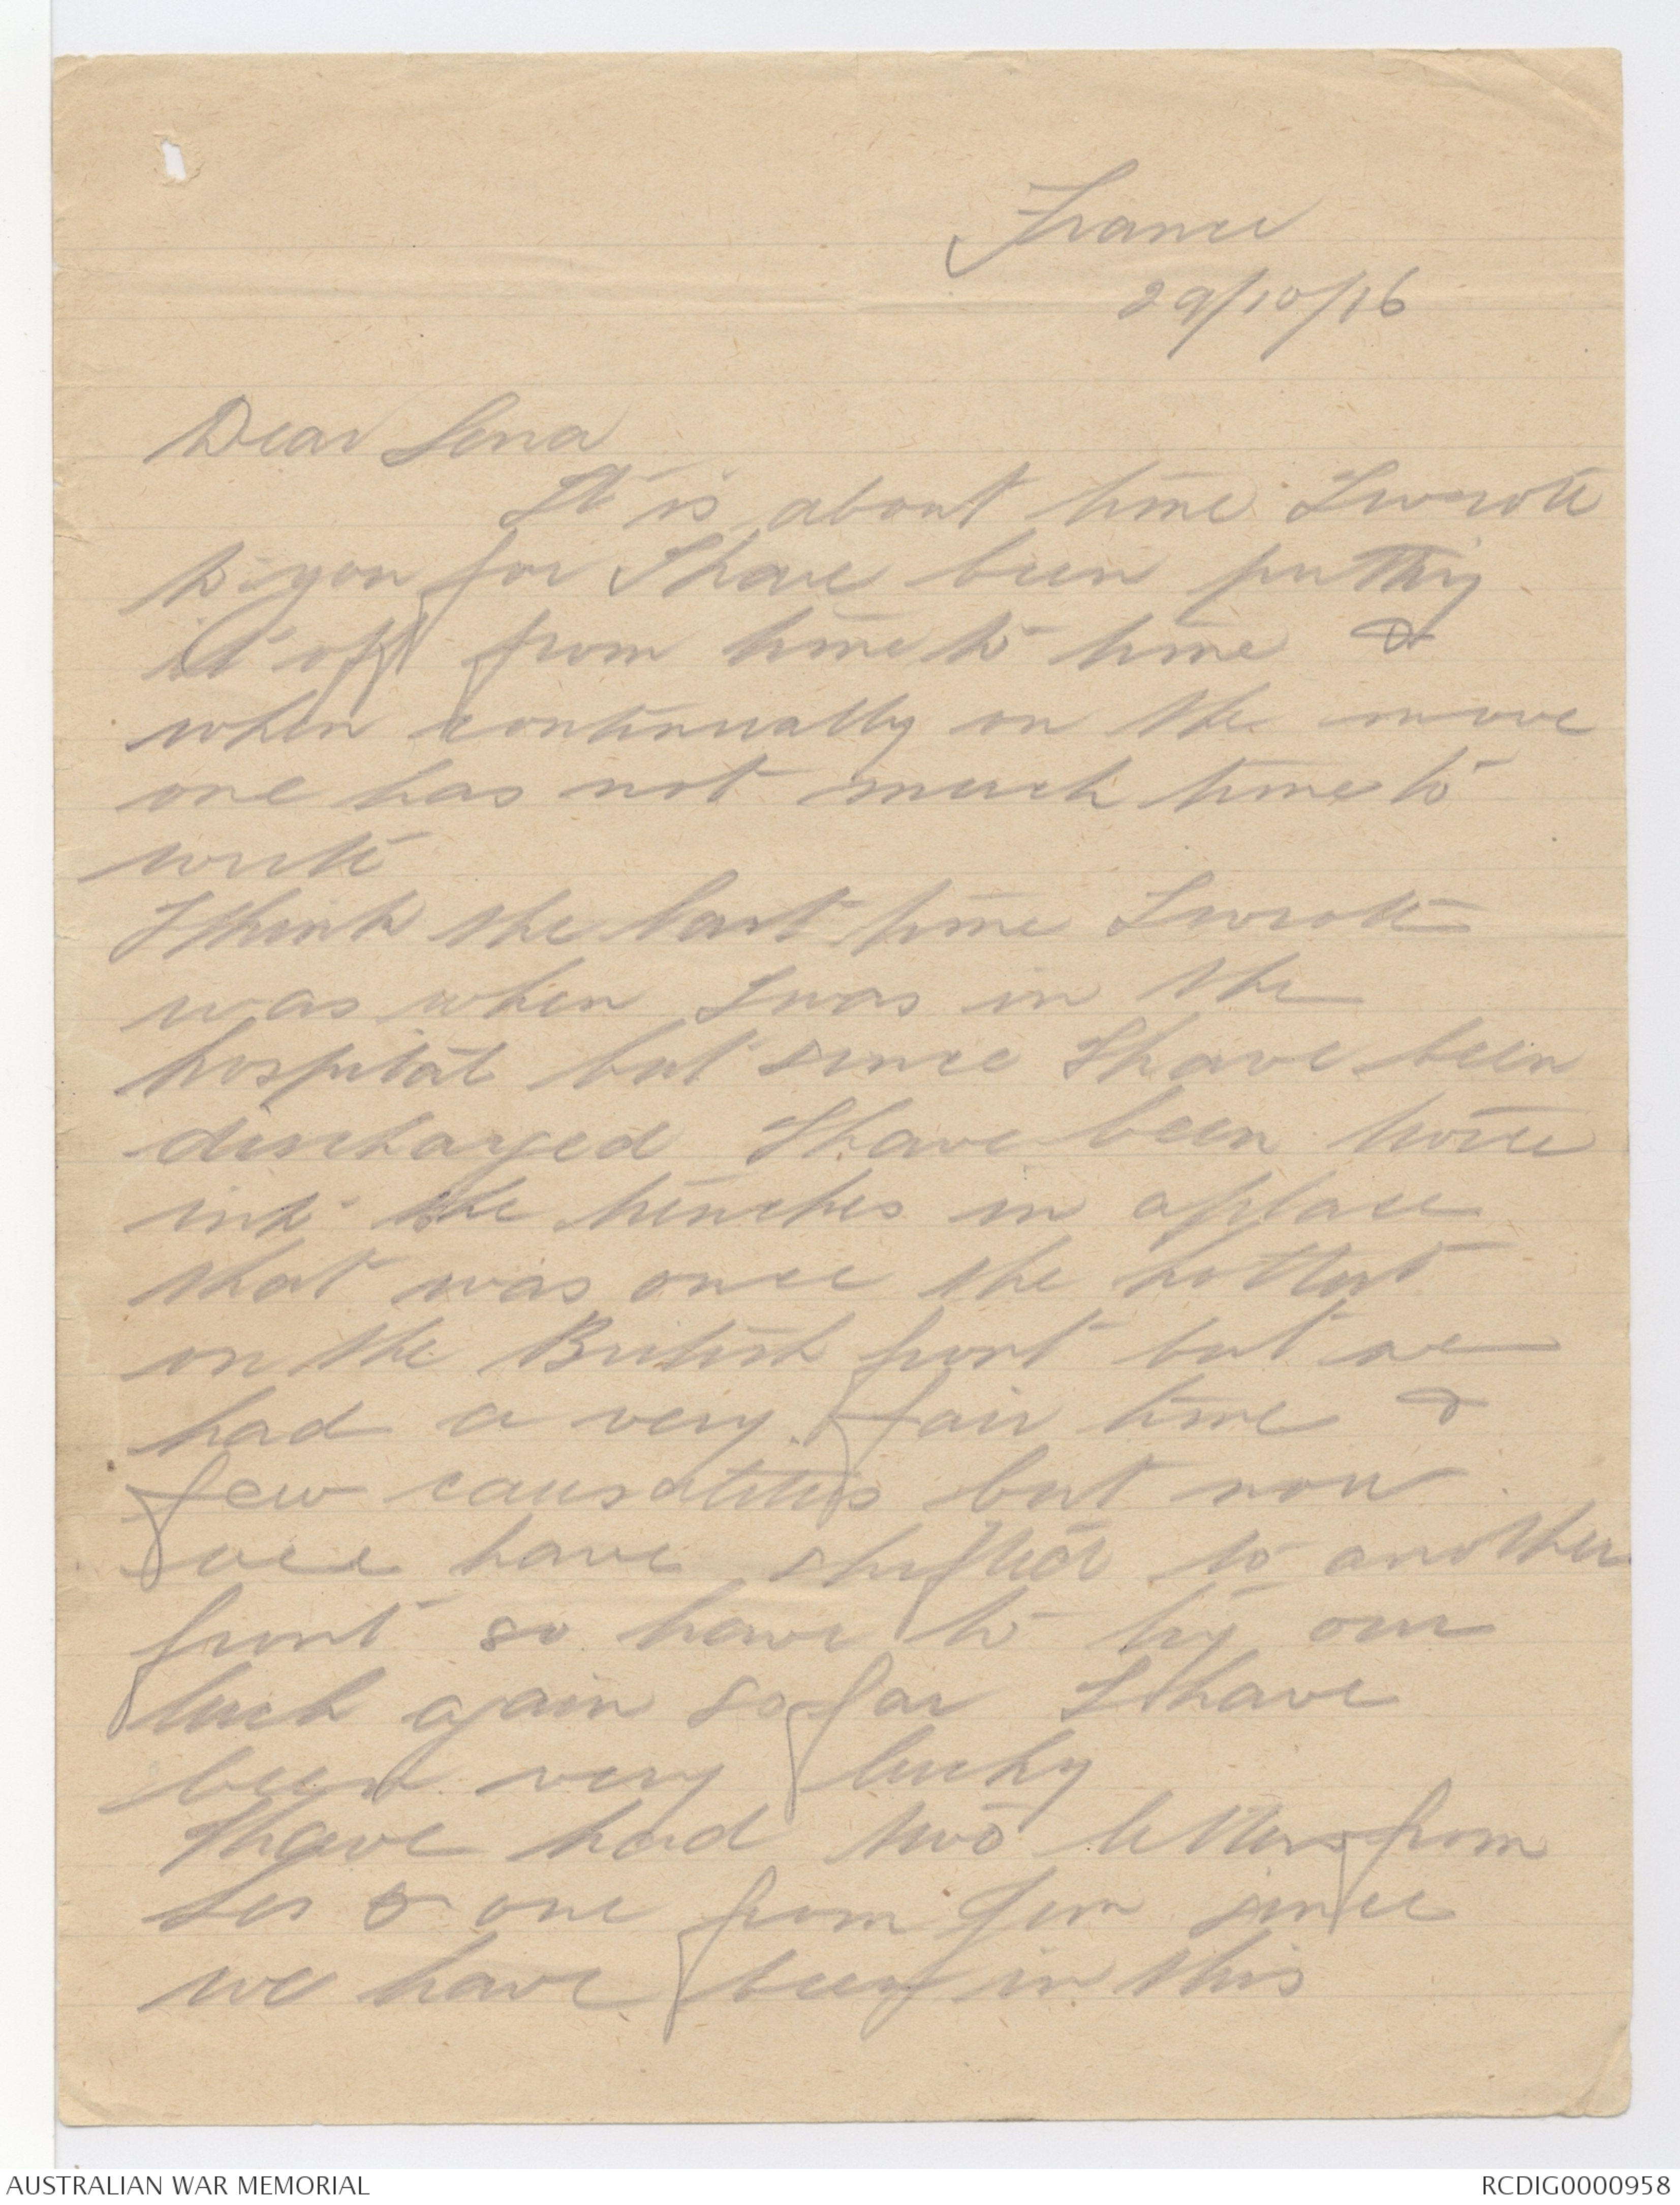 France
29/10/16
Dear Lena
It is about time I wrote
to you for I have been putting
it off from time to time &
when continually on the move
one has not much time to
write
I think the last time I wrote
was when I was in the
hospital but since I have been
discharged I have been twice
into the trenches in a place
that was once the hottest
on the British front but we
had a very fair time &
few causalities but now
we have shifted to another
front so have to try our
luck again so far I have
been very lucky
I have had two letters from
Les & one from Jim since
we have been in this
AUSTRALIAN WAR MEMORIAL
RCDIG0000958